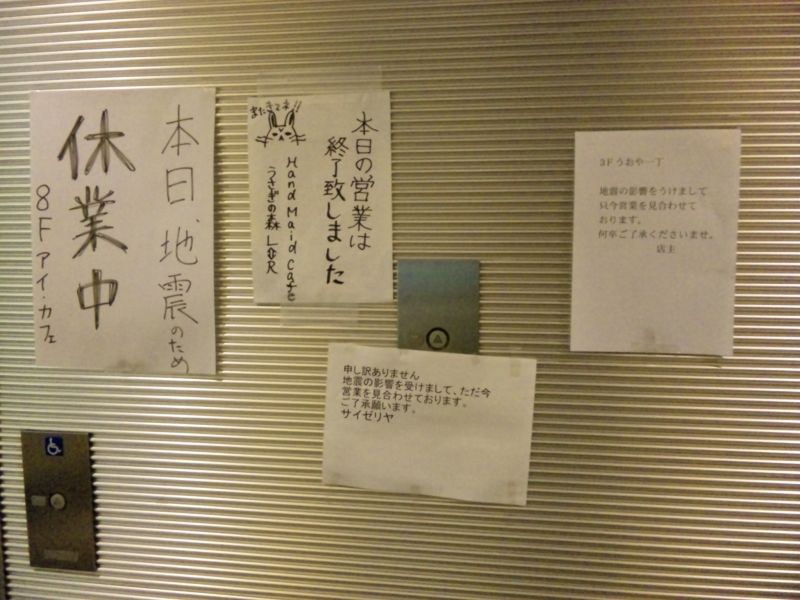 本日、地震のため
休業中
8F アイ・カフェ
本日の営業は
終了致しました
またきてネ!!
Hand Maid Cafe
うさぎの森
3Fうおや一丁
地震の影響をうけまして
只今営業を見合わせて
おります。
何卒ご了承くださいませ。
店主
申し訳ありません
地震の影響を受けまして、ただ今
営業を見合わせております。
ご了承願います。
サイゼリヤ